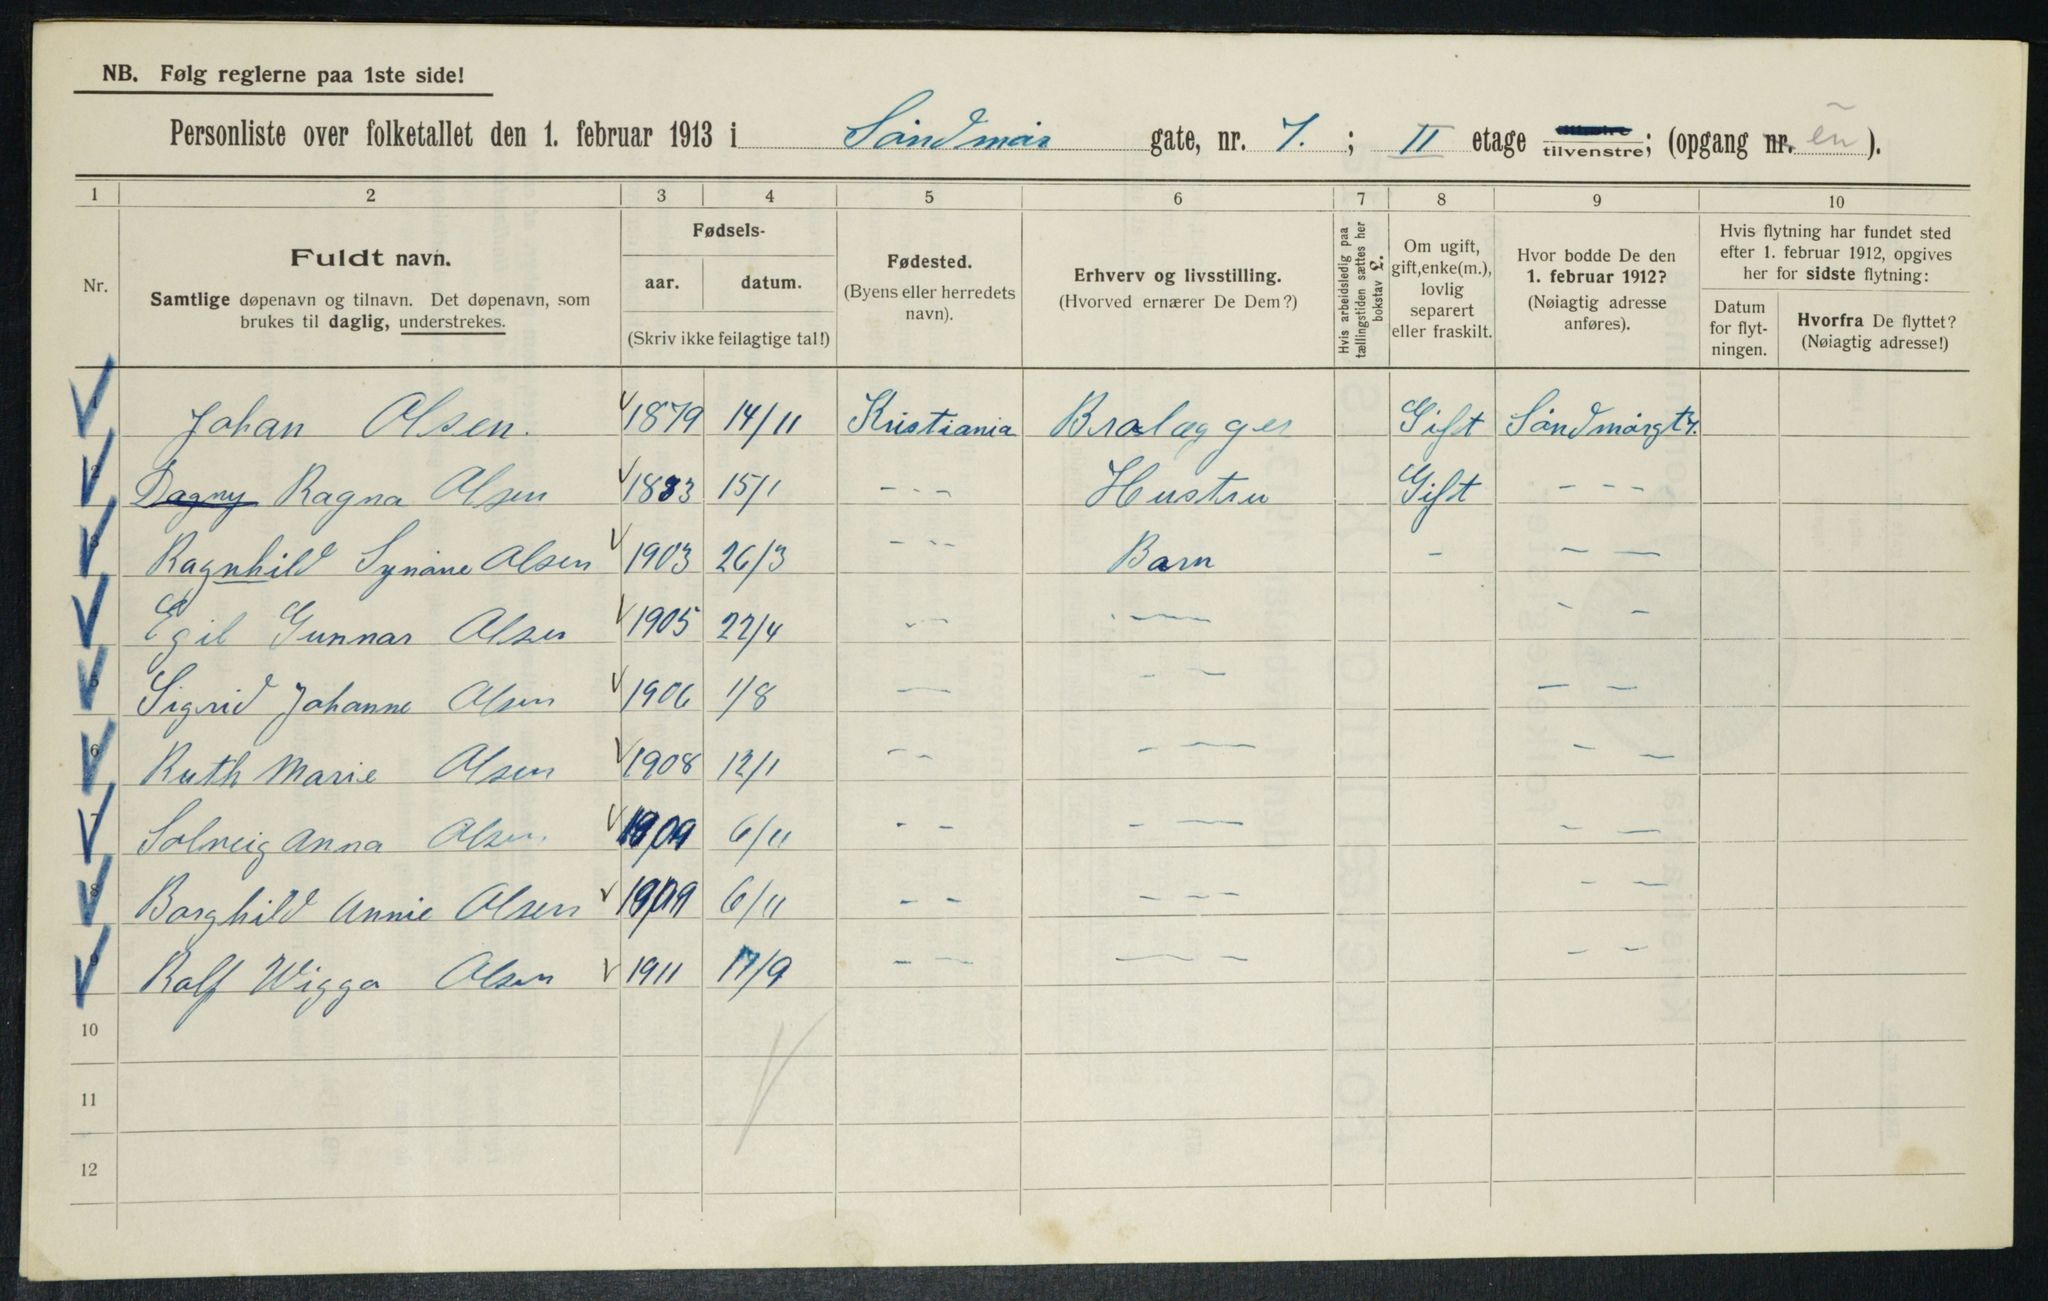 NB. Følg reglerne paa 1ste side!
Personliste over folketallet den 1. februar 1913 i Søndmør gate, nr. 7. ; II etage tilvenstre; (opgang nr. en ).
1 2 3 4 5 6 7 8 9 10
Nr.
Fuldt navn.
Samtlige døpenavn og tilnavn. Det døpenavn, som
brukes til daglig, understrekes.
Fødsels-
aar. datum.
(Skriv ikke feilagtige tal!)
Fødested.
(Byens eller herredets
navn).
Erhverv og livsstilling.
(Hvorved ernærer De Dem?)
Hvis arbeidsledig paa
tællingstiden sættes her
bokstav L.
Om ugift,
gift, enke(m.),
lovlig
separert
eller fraskilt.
Hvor bodde De den
1. februar 1912?
(Nøiagtig adresse
anføres).
Hvis flytning har fundet sted
efter 1. februar 1912, opgives
her for sidste flytning:
Datum
for flyt-
ningen.
Hvorfra De flyttet?
(Nøiagtig adresse!)
1 Johan Olsen. 1879 14/11 Kristiania Brolægger Gift Søndmørgt 7.
2 Dagny Ragna Olsen 1883 15/1 - - - Hustru Gift - - -
3 Ragnhild Synøve Olsen 1903 26/3 - - - Barn - - -
4 Egil Gunnar Olsen 1905 22/4 - - - - - -
5 Sigrid Johanne Olsen 1906 1/8 - - - - -
6 Ruth Marie Olsen 1908 12/1 - - - - - -
7 Solveig Anna Olsen 1909 6/11 - - - - - -
8 Borghild Annie Olsen 1909 6/11 - - - - - - -
9 Rolf Wiggo Olsen 1911 17/9 - - - - - - -
10
11
12